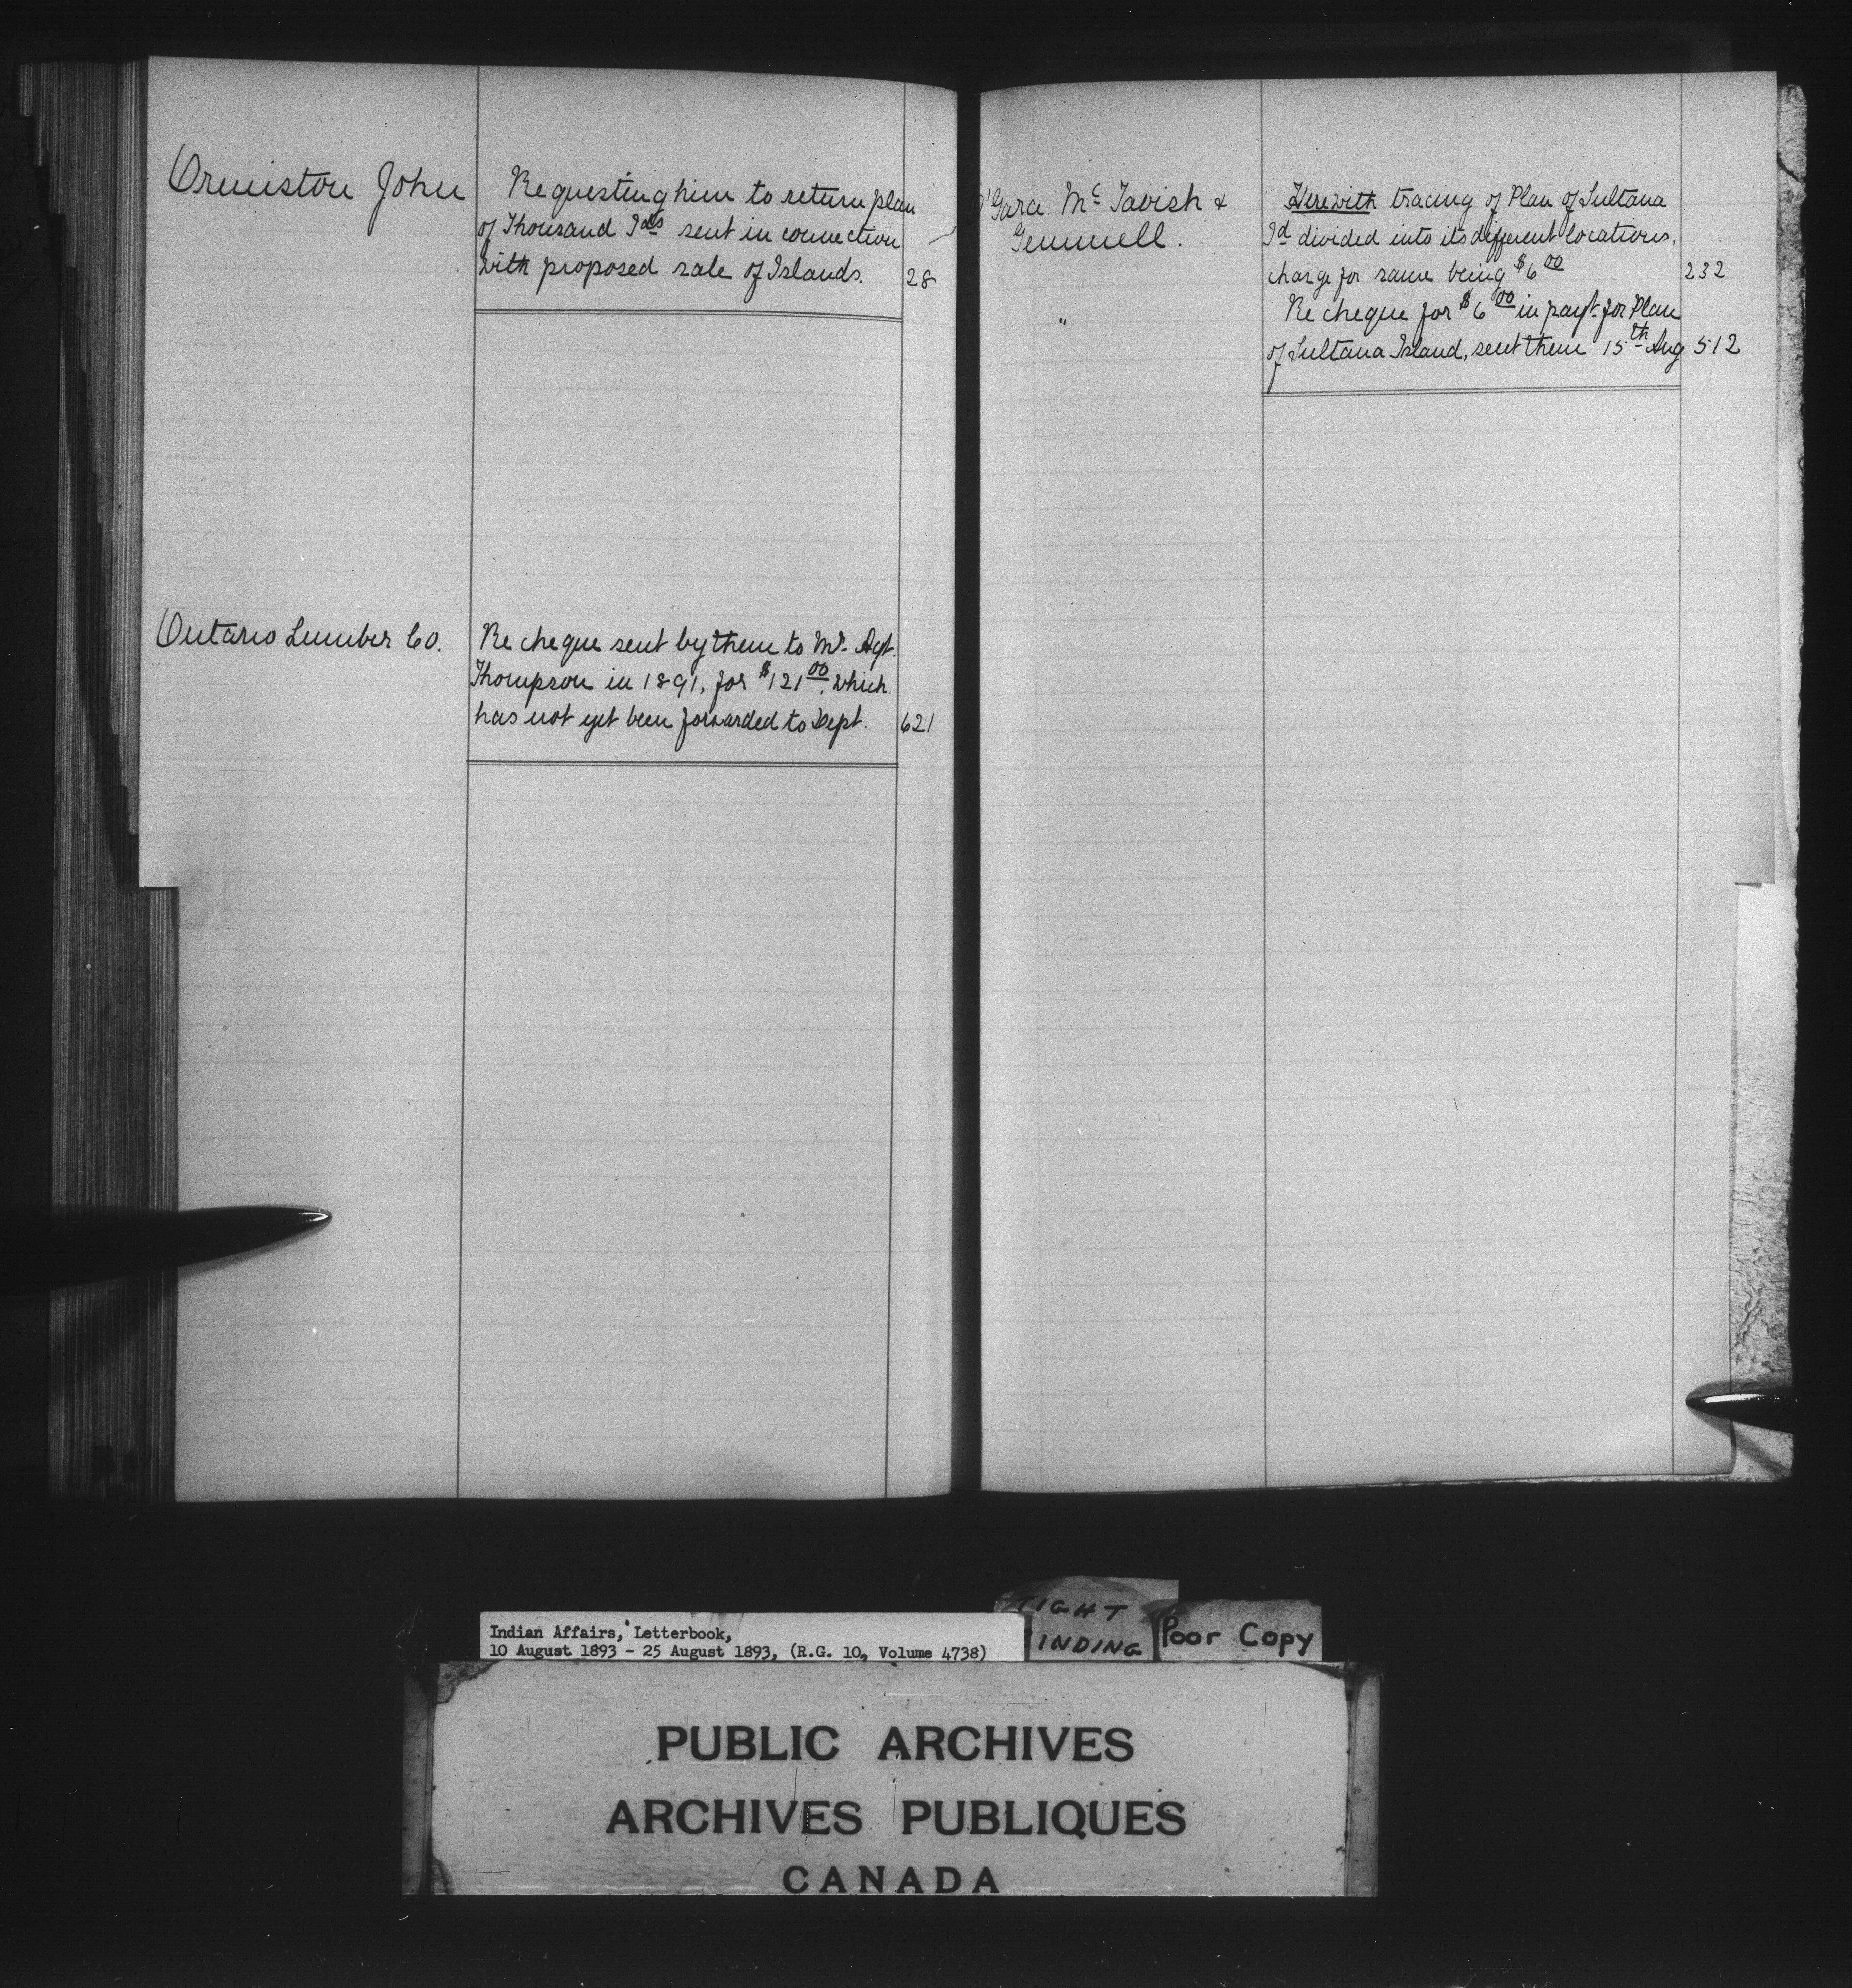 Ormiston John
Requesting him to return plan
of Thousand Ids sent in connection
with proposed sale of Islands. 28
Ontario Lumber Co.
Re cheque sent by them to Mr. Agt.
Thompson in 1891, for $121 00, which
has not yet been forwarded to Dept. 621
O'Gara McTavish &
Gemmell.
Herewith tracing of Plan of Sultana
Id divided into its different locations,
charge for same being $6 00 232
" Re cheque for $6 00 in payt. for Plan
of Sultana Island, sent them 15th Aug 512
Indian Affairs, Letterbook,
10 August 1893 - 25 August 1893, (R.G. 10, Volume 4738)
TIGHT
BINDING
Poor Copy
PUBLIC ARCHIVES
ARCHIVES PUBLIQUES
CANADA